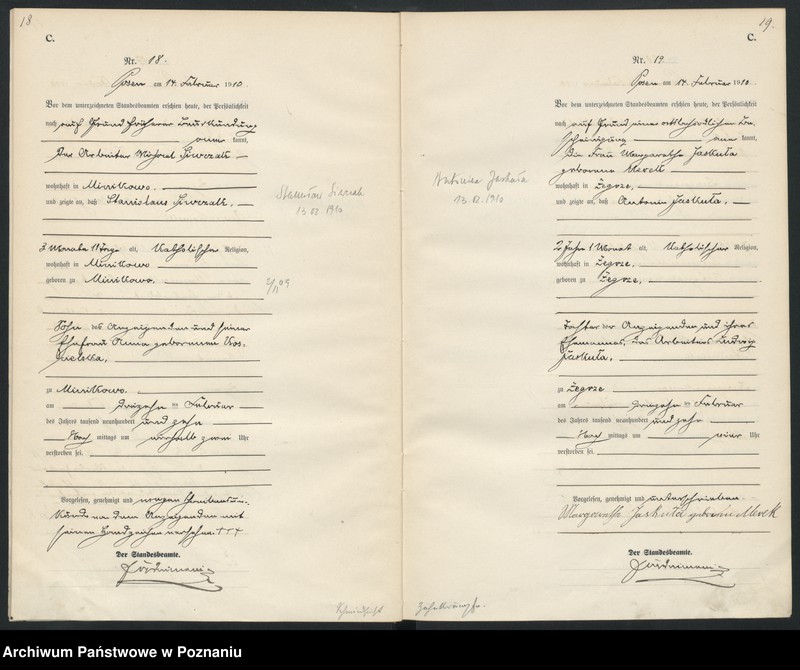 18
C.
Nr. 18.
Posen am 14. Februar 1910.
Vor dem unterzeichneten Standesbeamten erschien heute, der Persönlichkeit
nach auf Grund früherer Beurkundung
kannt,
der Arbeiter Michael Siwczak
wohnhaft in Minikowo.
und zeigte an, daß Stanislaus Siwczak,
3 Monate 11 Tage alt, katholischer Religion,
wohnhaft in Minikowo
geboren zu Minikowo,
Sohn des Anzeigenden und seiner
Ehefrau Anna geborenen
zu Minikowo.
am dreizehn ten Februar
des Jahres tausend neunhundert und zehn
Nach mittags um zwei Uhr
verstorben sei.
Vorgelesen, genehmigt und wegen Schreibensun-
kunde von dem Anzeigenden mit
seinem Handzeichen versehen. +++
Der Standesbeamte.
Stanisław Siwczak
13 02 1910
2/11 09
19.
C.
Nr. 19.
Posen am 14. Februar 1910.
Vor dem unterzeichneten Standesbeamten erschien heute, der Persönlichkeit
nach auf Grund einer ortsbehördlichen Be-
scheinigung kannt,
die Frau Margarethe Jaskuła
geborene Merek
wohnhaft in Żegrze,
und zeigte an, daß Antonie Jaskuła,
2 Jahre 1 Monat alt, katholischer Religion,
wohnhaft in Żegrze.
geboren zu Żegrze,
Tochter der Anzeigenden und ihres
Ehemannes, des Arbeiters Ludwig
Jaskuła,
zu Żegrze
am dreizehn ten Februar
des Jahres tausend neunhundert und zehn
Nach mittags um vier Uhr
verstorben sei.
Vorgelesen, genehmigt und unterschrieben
Margarethe Jaskuła geborene Merek
Der Standesbeamte.
Antonina Jaskuła
13.02.1910
Archiwum Państwowe w Poznaniu